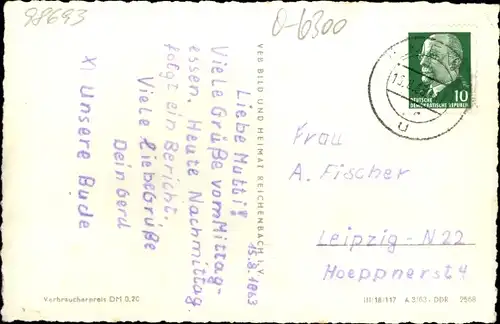 98693
O-6300
15.8.1963
Liebe Mutti!
Viele Grüße vom Mittag-
essen. Heute Nachmittag
folgt ein Bericht.
Viele liebe Grüße
Dein Gerd
X) Unsere Bude
VEB BILD UND HEIMAT REICHENBACH I. V.
10
DEUTSCHE
DEMOKRATISCHE REPUBLIK
Frau
A. Fischer
Leipzig-N22
Hoeppnerst 4
Verbraucherpreis DM 0,20
III/18/117 A 3/63 DDR 2566